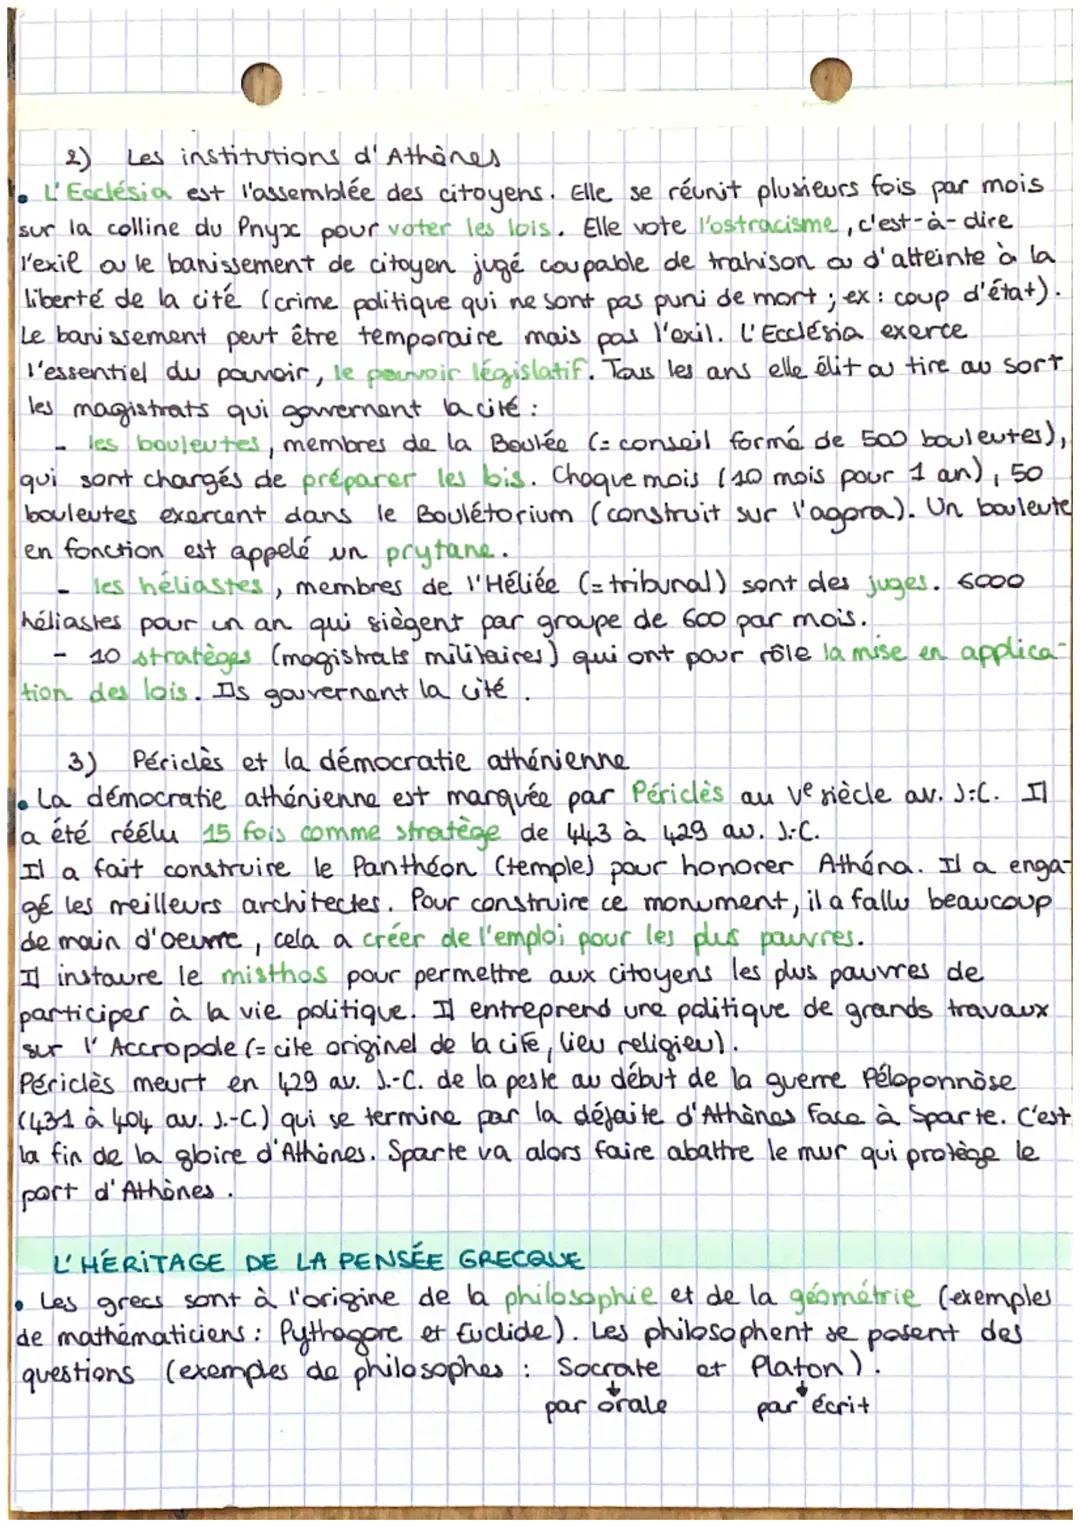 2) Les institutions d'Athènes
• L'Ecclésia est l'assemblée des citoyens. Elle se réunit plusieurs fois par mois
sur la colline du Pnyx pour voter les lois. Elle vote l'ostracisme, c'est-à-dire
l'exil ou le banissement de citoyen jugé coupable de trahison ou d'atteinte à la
liberté de la cité (crime politique qui ne sont pas puni de mort ; ex : coup d'état).
Le banissement peut être temporaire mais pas l'exil. L'Ecclésia exerce
l'essentiel du pouvoir, le pouvoir législatif. Tous les ans elle élit ou tire au sort
les magistrats qui gouvernent la cité :
- les bouleutes, membres de la Boulée (= conseil formé de 500 bouleutes),
qui sont chargés de préparer les lois. Chaque mois (10 mois pour 1 an), 50
bouleutes exercent dans le Boulétorium (construit sur l'agora). Un bouleute
en fonction est appelé un prytane.
- les héliastes, membres de l'Héliée (= tribunal) sont des juges. 6000
héliastes pour un an qui siègent par groupe de 600 par mois.
- 10 stratèges (magistrats militaires) qui ont pour rôle la mise en applica-
tion des lois. Ils gouvernent la cité.
3) Périclès et la démocratie athénienne
• La démocratie athénienne est marquée par Périclès au Ve siècle av. J.-C. Il
a été réélu 15 fois comme stratège de 443 à 429 av. J.-C.
Il a fait construire le Panthéon (temple) pour honorer Athéna. Il a enga-
gé les meilleurs architectes. Pour construire ce monument, il a fallu beaucoup
de main d'oeuvre, cela a créer de l'emploi pour les plus pauvres.
Il instaure le misthos pour permettre aux citoyens les plus pauvres de
participer à la vie politique. Il entreprend une politique de grands travaux
sur l'Accropole (= cite originel de la cité, lieu religieu).
Périclès meurt en 429 av. J.-C. de la peste au début de la guerre Péloponnèse
(431 à 404 av. J.-C.) qui se termine par la défaite d'Athènes face à Sparte. C'est
la fin de la gloire d'Athènes. Sparte va alors faire abattre le mur qui protège le
port d'Athènes.
L'HÉRITAGE DE LA PENSÉE GRECQUE
• Les grecs sont à l'origine de la philosophie et de la géométrie (exemples
de mathématiciens : Pythagore et Euclide). Les philosophent se posent des
questions (exemples de philosophes : Socrate et Platon).
par orale par écrit